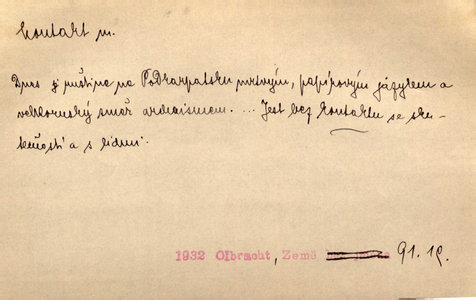 kontakt m.
Dnes je ruština na Podkarpatsku mrtvým, papírovým jazykem a
velkoruský směr archaismem. ... Jest bez kontaktu se sku-
tečností a s lidmi.
1932 Olbracht, Země 91.19.